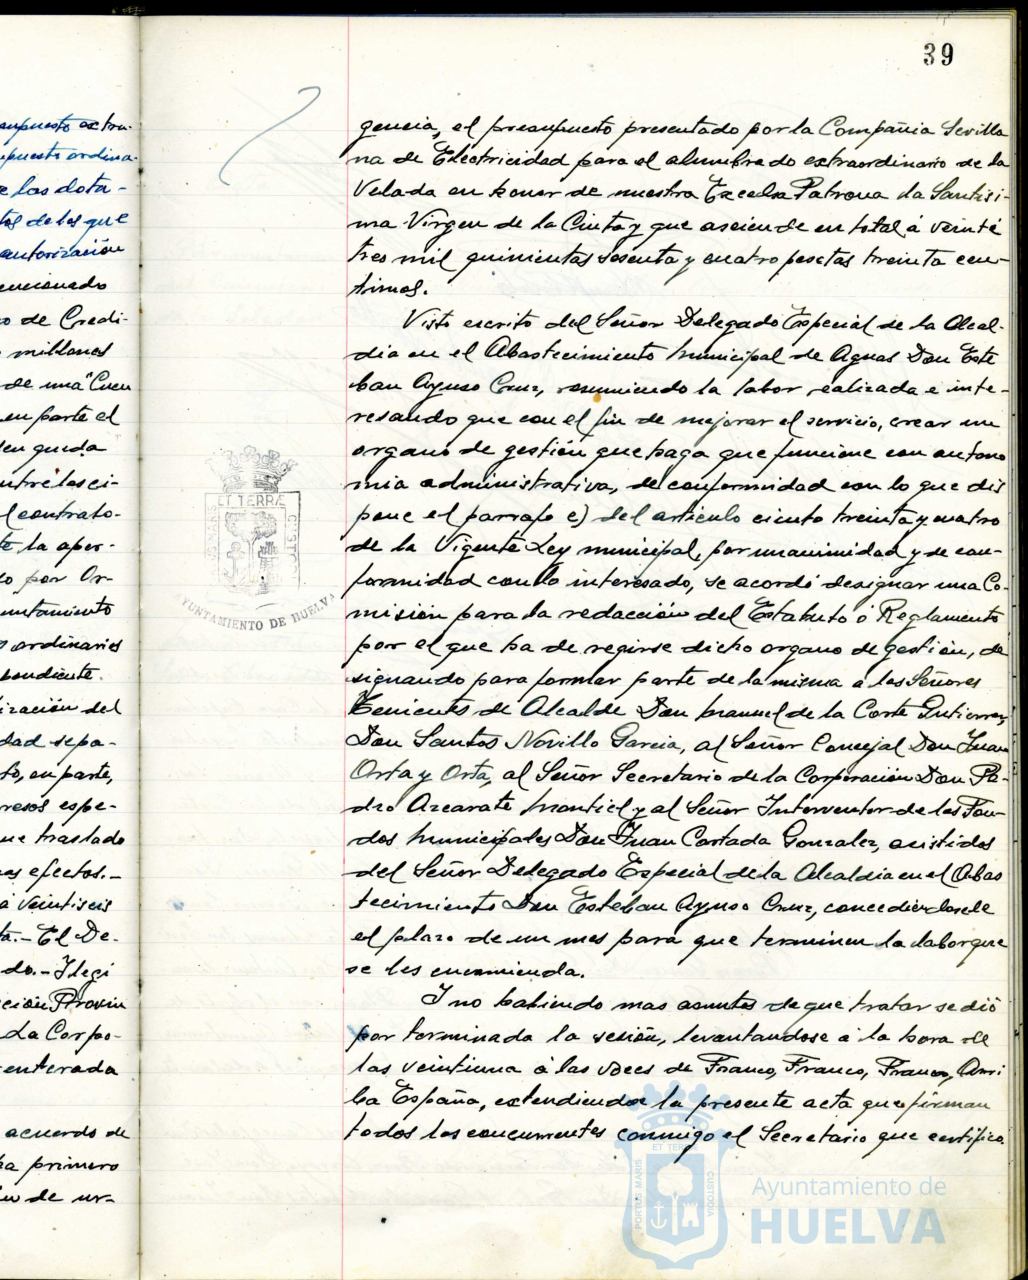 39
supuesto extra-
upuesto ordina-
e las dota-
tos de los que
autorización
encionado
o de Credi-
millones
de una "Cuen
en parte el
en queda
ntre los ci-
l contrato-
te la aper-
o por Or-
untamiento
ordinarios
pondiente.
ización del
dad sepa-
to, en parte,
resos espe-
ue traslado
os efectos.-
a veintiseis
ta.- El De-
do.- Ilegi
ción Provin
La Corpo-
enterada
acuerdo de
ra primero
de ur-
gencia, el presupuesto presentado por la Compañia Sevilla
na de Electricidad para el alumbrado extraordinario de la
Velada en honor de nuestra Excelsa Patrona la Santisi-
ma Virgen de la Cinta y que asciende en total á veinti
tres mil quinientas sesenta y cuatro pesetas treinta cen-
timos.
Visto escrito del Señor Delegado Especial de la Alcal-
dia en el Abastecimiento Municipal de Aguas Don Este
ban Ayuso Cruz, resumiendo la labor realizada e inte-
resando que con el fin de mejorar el servicio, crear un
organo de gestión que haga que funcione con autono
mia administrativa, de conformidad con lo que dis
pone el parrafo c) del articulo ciento treinta y cuatro
de la Vigente Ley municipal, por unanimidad y de con-
formidad con lo interesado, se acordó designar una Co-
misión para la redacción del Estatuto ó Reglamento
por el que ha de regirse dicho organo de gestión, de
signando para formar parte de la misma a los Señores
Tenientes de Alcalde Don Manuel de la Corte Gutierrez,
Don Santos Novillo Garcia, al Señor Concejal Don Juan
Orta y Orta, al Señor Secretario de la Corporación Don Pe-
dro Azcarate Montiel y al Señor Interventor de los Fon-
dos Municipales Don Juan Cortada Gonzalez, asistidos
del Señor Delegado Especial de la Alcaldia en el Abas
tecimiento Don Esteban Ayuso Cruz, concediendosele
el plazo de un mes para que terminen la labor que
se les encomienda.
I no habiendo mas asuntos de que tratar se dió
por terminada la sesión, levantandose á la hora de
las veintiuna á las voces de Franco, Franco, Franco, Arri
ba España, extendiendose la presente acta que firman
todos los concurrentes conmigo el Secretario que certifico.
ET TERRÆ
CUSTODIA
AYUNTAMIENTO DE HUELVA
ET TERRÆ
PORTUS MARIS
CUSTODIA
Ayuntamiento de
HUELVA